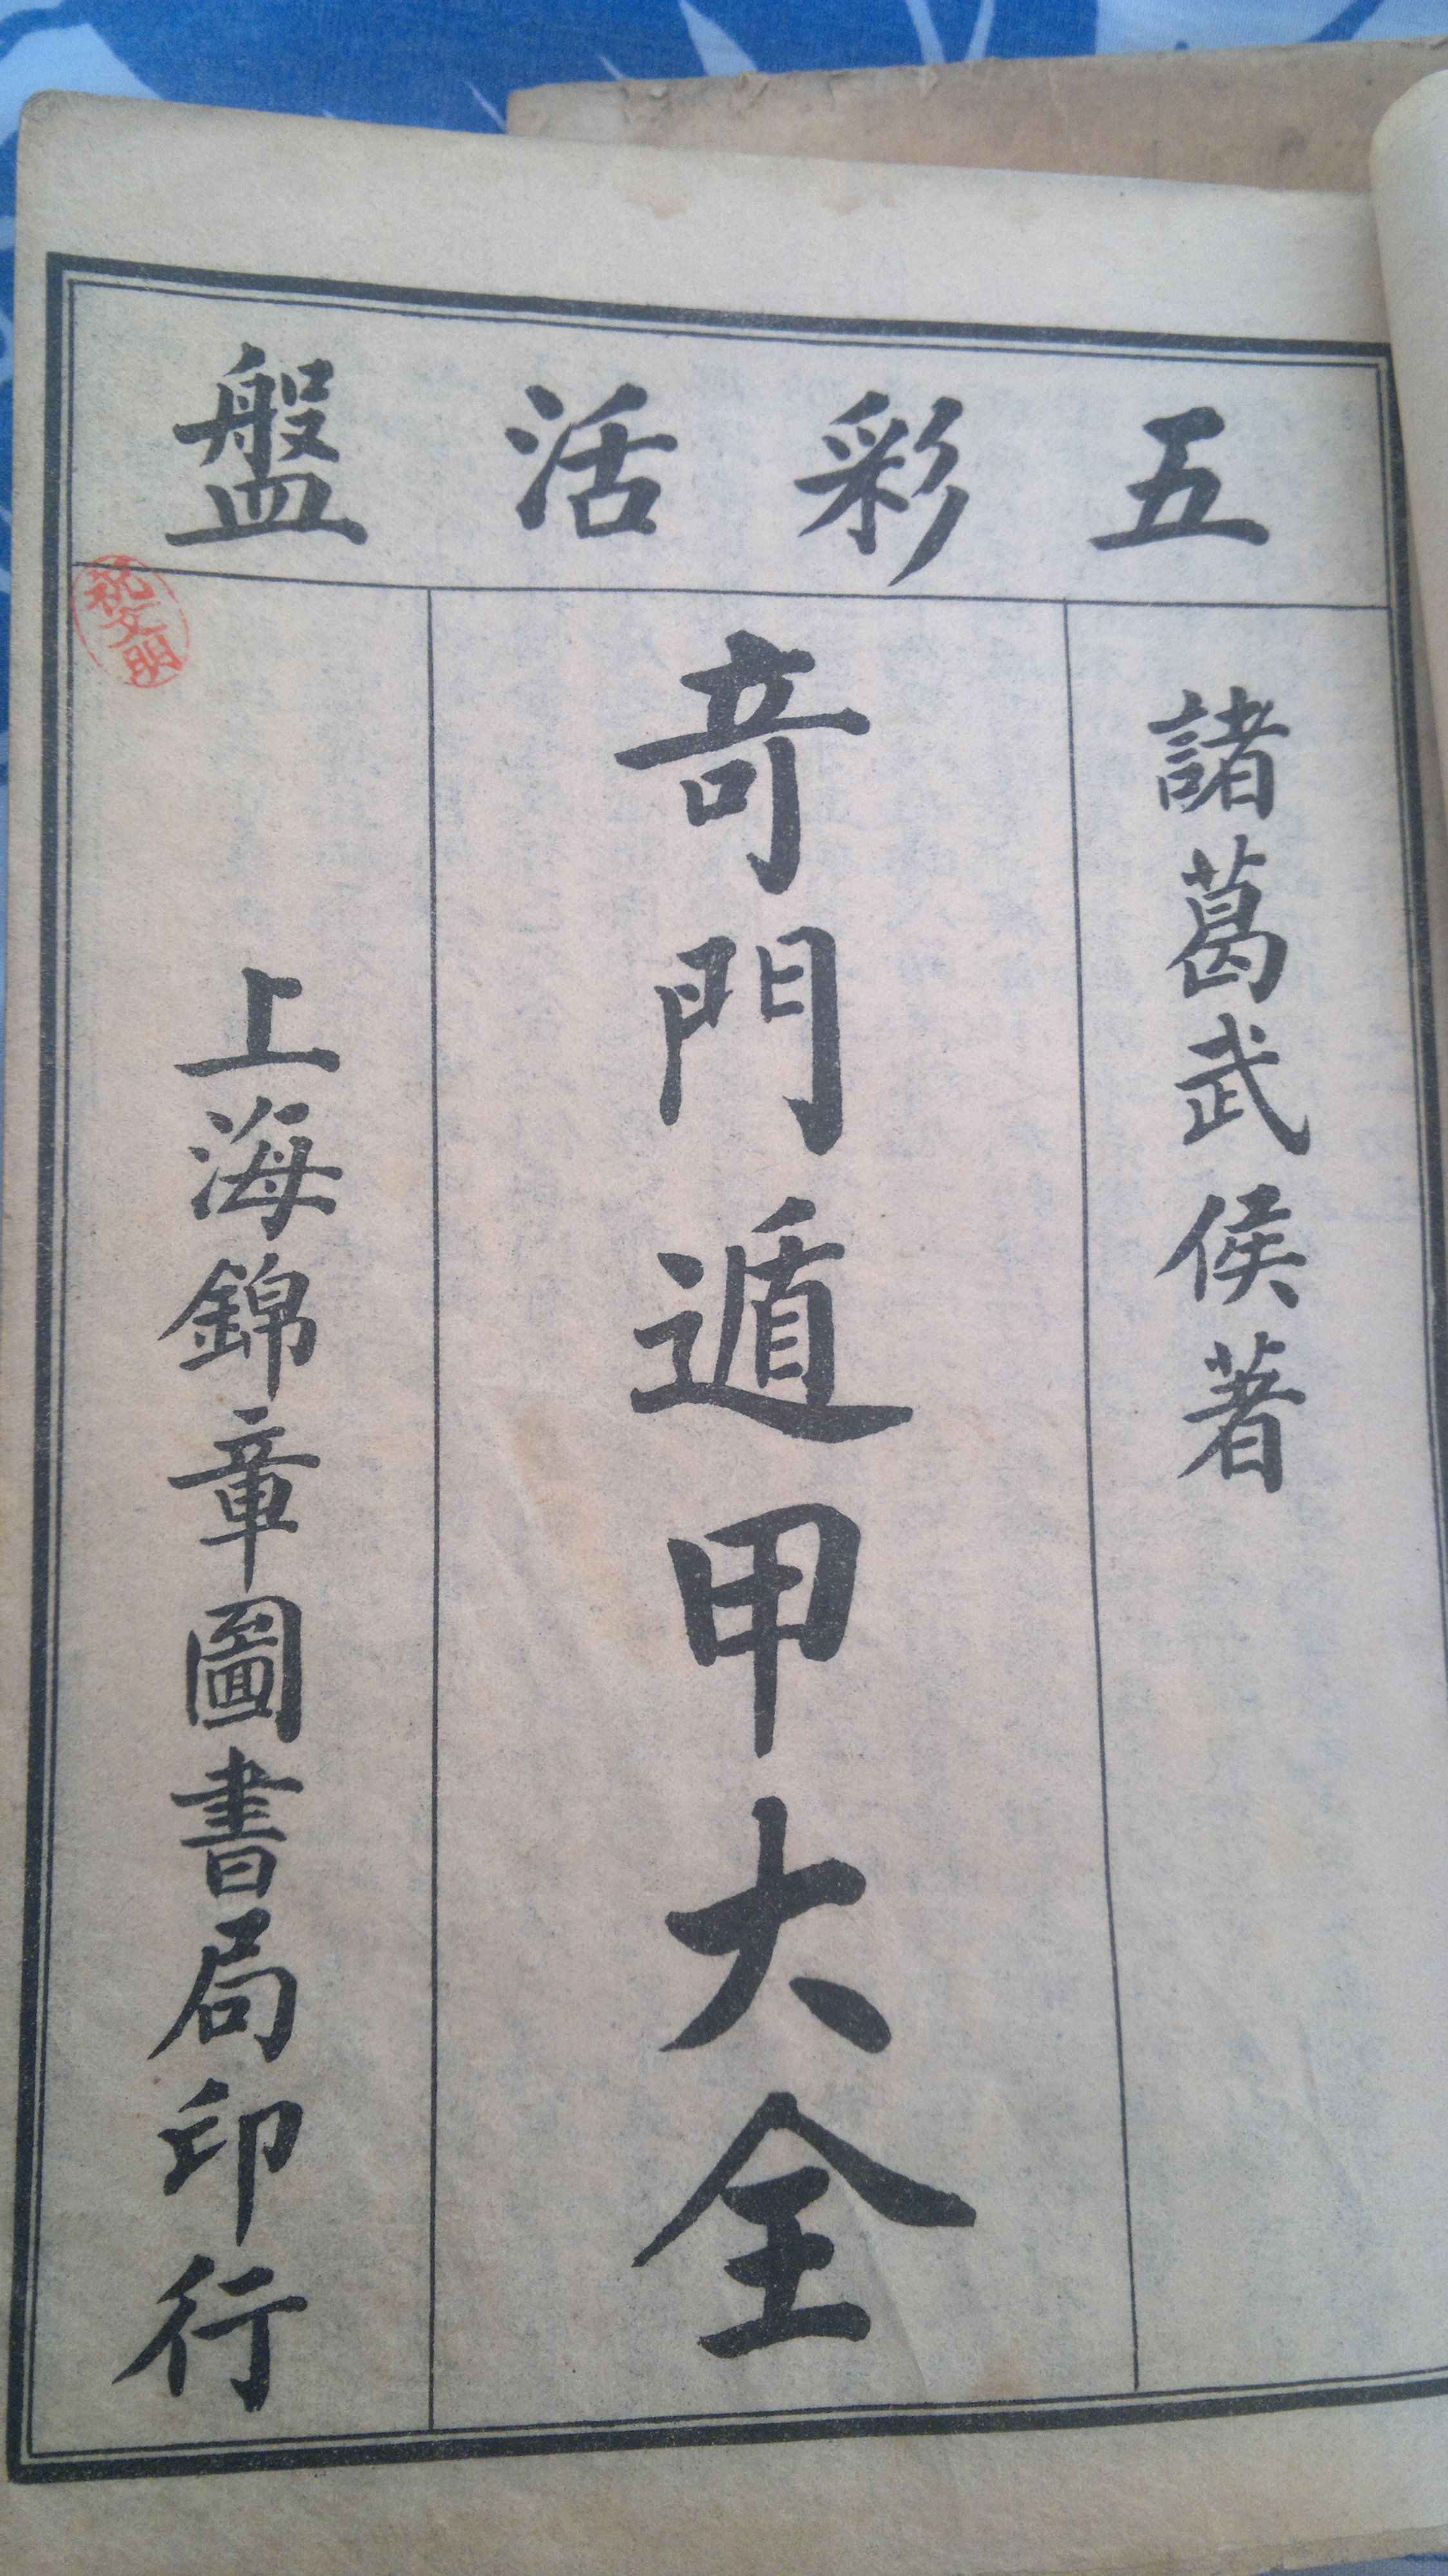 五彩活盤
諸葛武侯著
竒門遁甲大全
上海錦章圖書局印行
祝文明